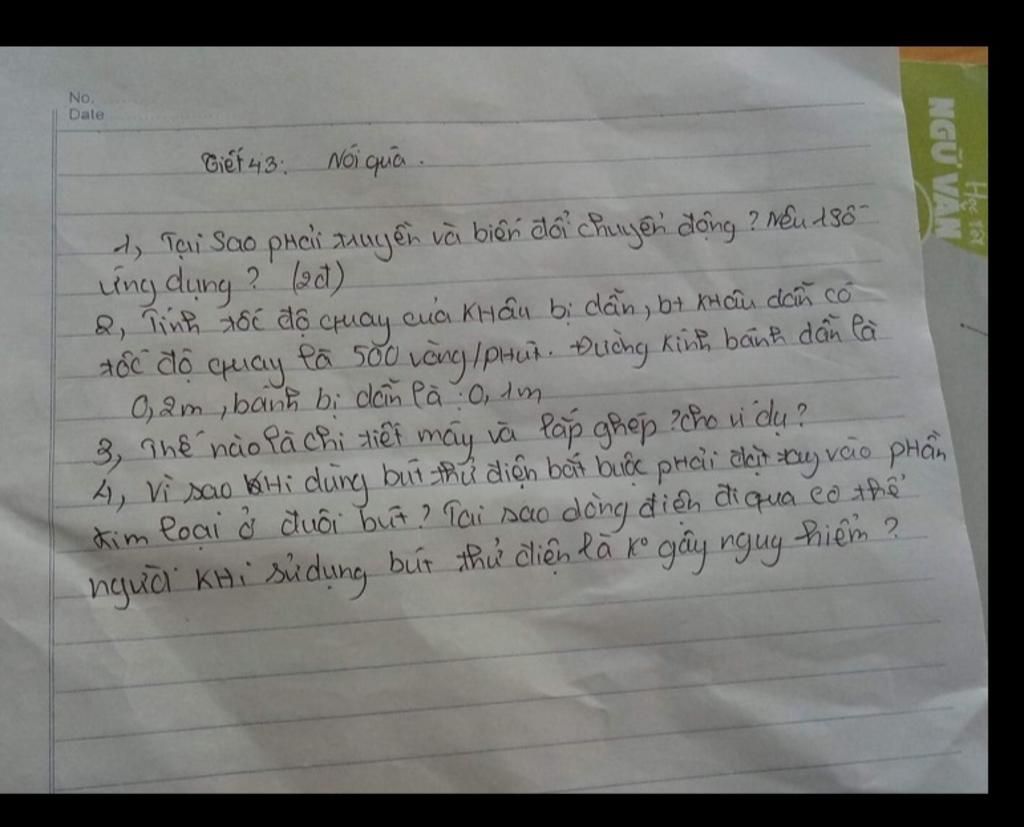 No.
Date
Tiết 43: Nói quà.
1, Tại sao phải truyền và biến đổi chuyển động? Nêu 1 số
ứng dụng? (2đ)
2, Tính tốc độ quay của khâu bị dẫn, bt khâu dẫn có
tốc độ quay là 500 vòng/phút. Đường kính bánh dẫn là
0,2m, bánh bị dẫn là: 0,1m
3, Thế nào là chi tiết máy và lắp ghép? cho ví dụ?
4, Vì sao khi dùng bút thử điện bắt buộc phải đặt tay vào phần
kim loại ở đuôi bút? Tại sao dòng điện đi qua cơ thể
người khi sử dụng bút thử điện là ko gây nguy hiểm?
NGỮ VĂN
Học tốt